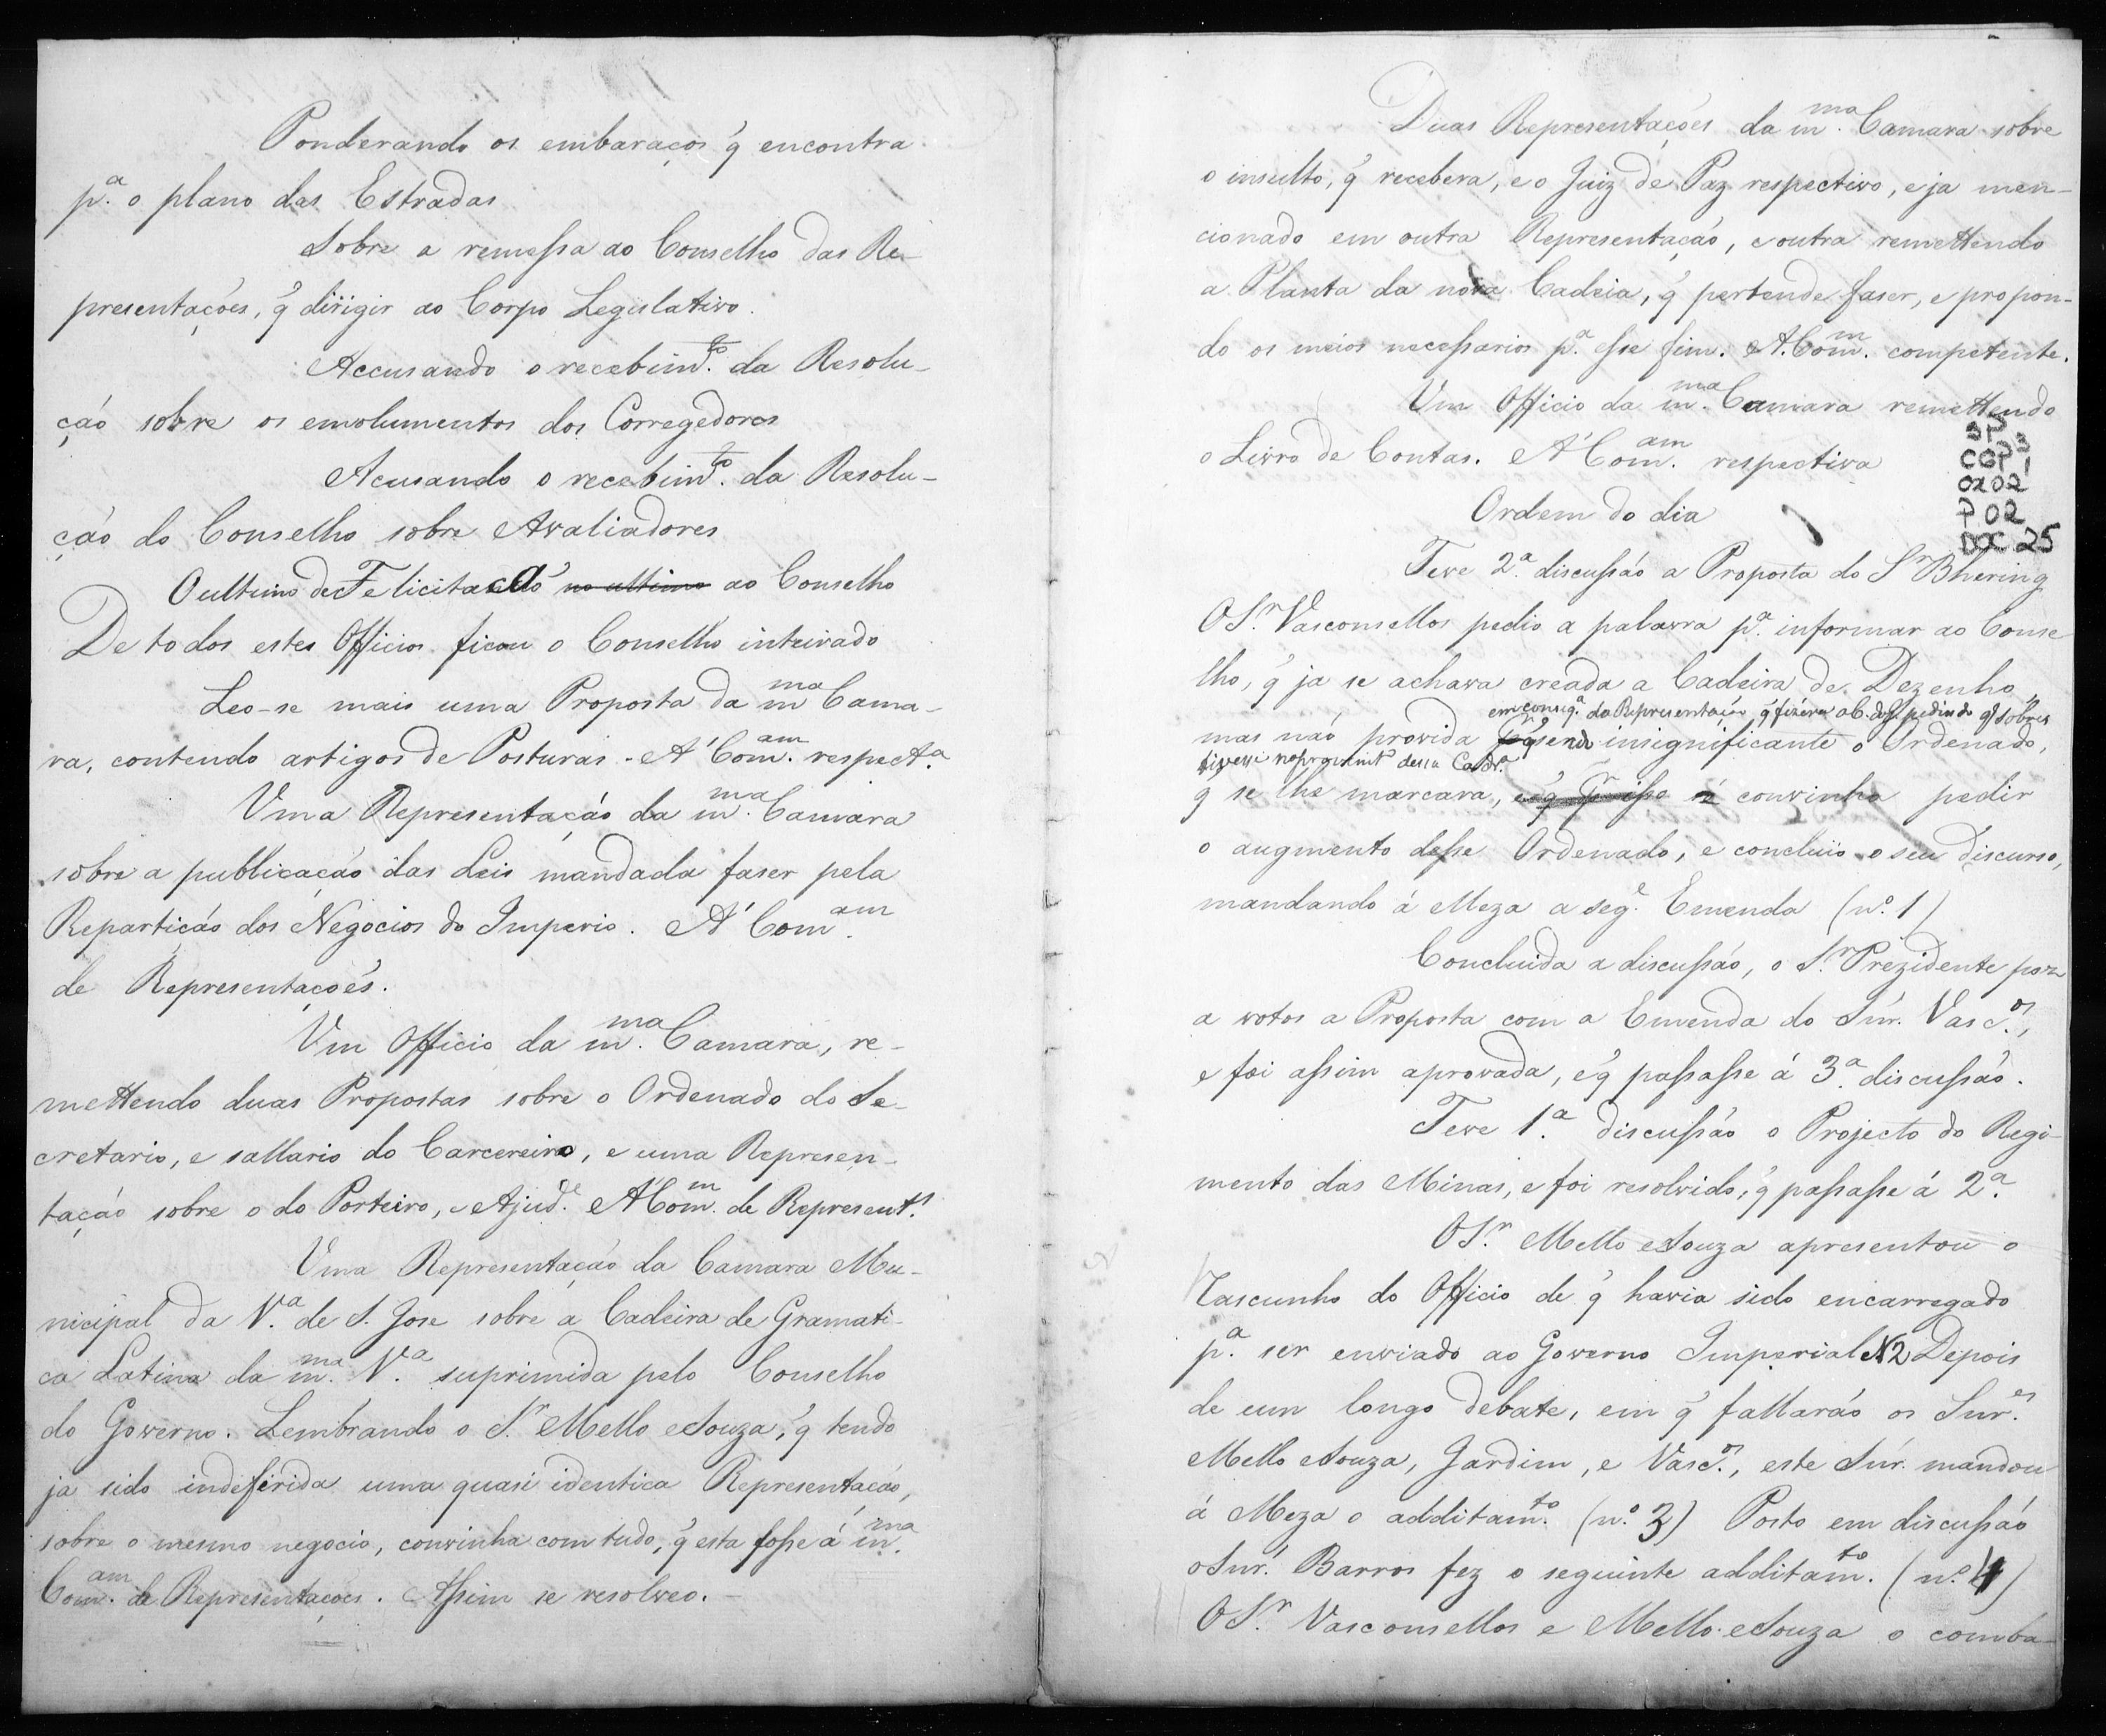 Ponderando os embaraços q̃ encontra
p.ª o plano das Estradas
Sobre a remessa ao Conselho das Re-
presentações, q̃ dirigir ao Corpo Legislativo.
Accusando o recebim.to da Resolu-
ção sobre os emolumentos dos Corregedores
Acusando o recebim.to da Resolu-
ção do Conselho sobre Avaliadores
O ultimo de Felicitação no ultimo ao Conselho
De todos estes Officios ficou o Conselho inteirado
Leo-se mais uma Proposta da m.ma Cama-
ra, contendo artigos de Posturas. A' Com.am respect.ª
Uma Representação da m.ma Camara
sobre a publicação das Leis mandada faser pela
Repartição dos Negocios do Imperio. A' Com.am
de Representações.
Um Officio da m.ma Camara, re-
mettendo duas Propostas sobre o Ordenado do Se-
cretario, e sallario do Carcereiro, e uma Represen-
tação sobre o do Porteiro, e Ajud.e A Com.m de Represent.s
Uma Representação da Camara Mu-
nicipal da V.ª de S. Jose sobre a Cadeira de Gramati-
ca Latina da m.ma V.ª suprimida pelo Conselho
do Governo. Lembrando o S.r Mello e Souza, q̃ tendo
ja sido indeferida uma quasi identica Representação,
sobre o mesmo negocio, convinha com tudo, q̃ esta fosse á m.ma
Com.am de Representações. Assim se resolveo.-
Duas Representações da m.ma Camara sobre
o insulto, q̃ recebera, e o Juiz de Paz respectivo, e ja men-
cionado em outra Representação, e outra remettendo
a Planta da nova Cadeia, q̃ pertende faser, e propon-
do os meios necessarios p.ª esse fim. A. Com.m competente.
Um Officio da m.ma Camara remettendo
o Livro de Contas. A' Com.am respectiva
CGP 1
0202
P 02
DOC 25
Ordem do dia
Teve 2.ª discussão a Proposta do S.r Bhering
O S.r Vasconsellos pedio a palavra p.ª informar ao Conse
lho, q̃ ja se achava creada a Cadeira de Dezenho,
em conseq.ª da Representação q̃ fizéra pedindo q̃ sobre
mas não provida sendo insignificante o Ordenado,
tivesse dessa Cadr.ª
q se lhe marcara, e q̃ isso convinha pedir
o augmento desse Ordenado, e concluio o seu discurso,
mandando á Meza a seg.e Emenda (n.º 1)
Concluida a discussão, o S.r Prezidente poz
a votos a Proposta com a Emenda do Snr. Vasc.os,
e foi assim aprovada, e q̃ passasse á 3.ª discussão.
Teve 1.ª discussão o Projecto do Regi-
mento das Minas, e foi resolvido, q̃ passasse á 2.ª
O S.r Mello e Souza apresentou o
rascunho do Officio de q̃ havia sido encarregado
p.ª ser enviado ao Governo Imperial N2 Depois
de um longo debate, em q̃ fallarão os Snr.es
Mello e Souza, Jardim, e Vasc.os, este Snr. mandou
á Meza o additam.to (n.º 3) Posto em discussão
o Snr. Barros fez o seguinte additam.to (n.º 4)
O S.r Vasconsellos e Mello e Souza o comba-